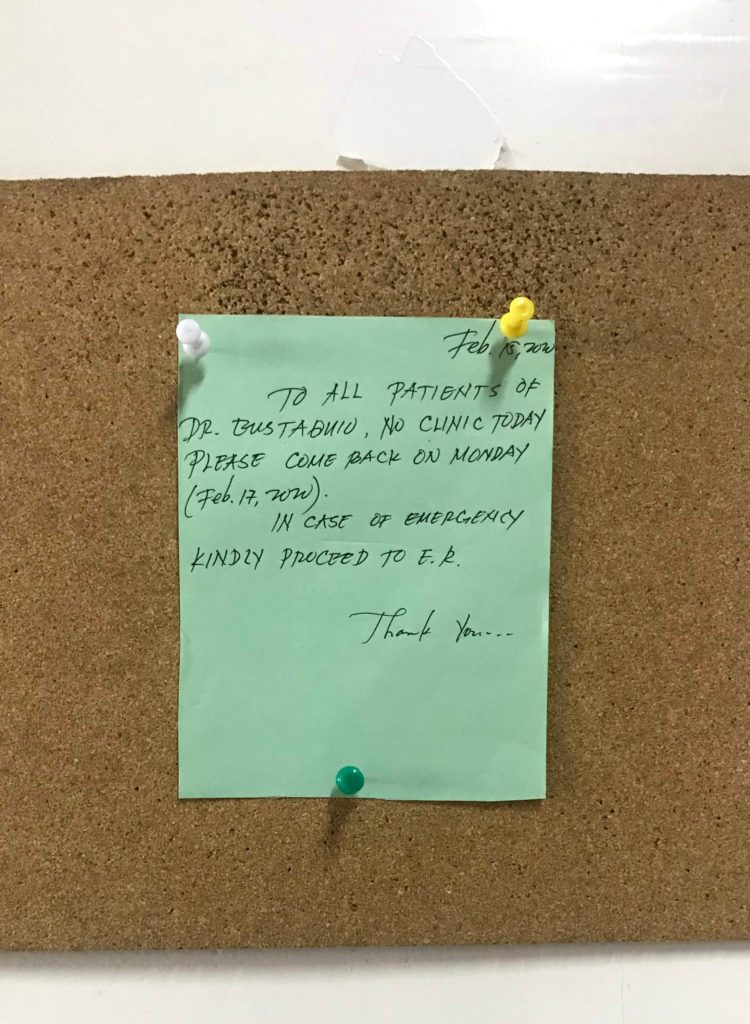 Feb. 15, 2020
TO ALL PATIENTS OF
DR. EUSTAQUIO, NO CLINIC TODAY
PLEASE COME BACK ON MONDAY
(Feb. 17, 2020).
IN CASE OF EMERGENCY
KINDLY PROCEED TO E.R.
Thank You...